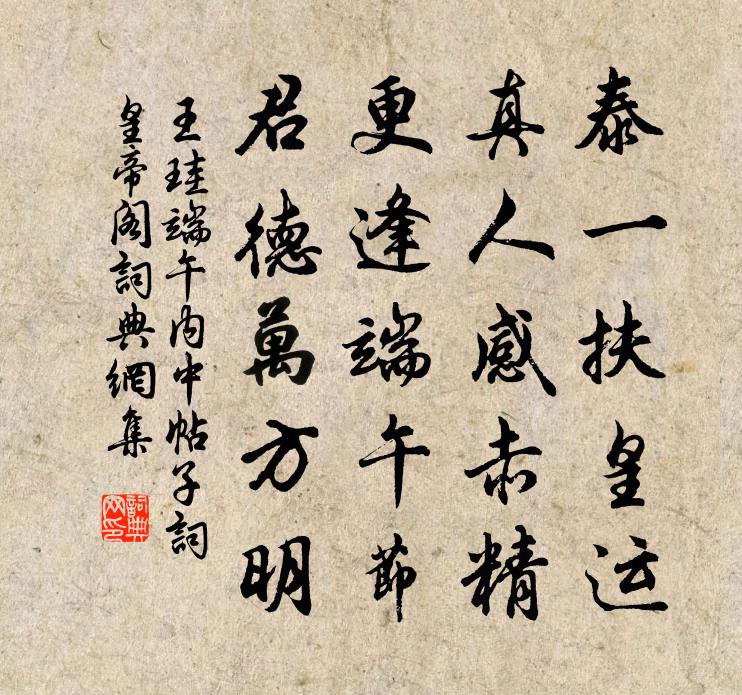 泰一扶皇运
真人感赤精
更逢端午節
君德萬方明
王珪端午内中帖子詞
皇帝阁詞典網集
詞典网印